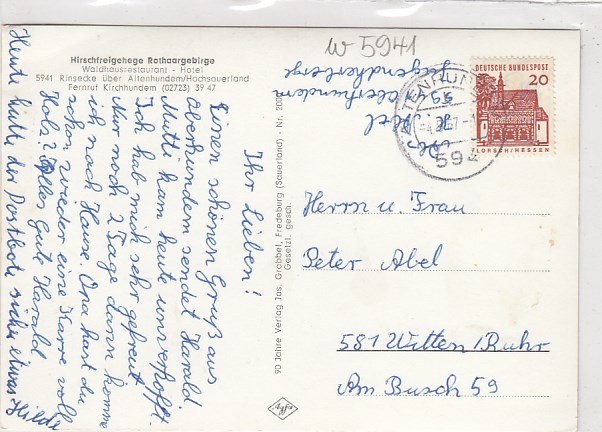 W 5941
Hirschfreigehege Rothaargebirge
Waldhausrestaurant - Hotel
5941 Rinsecke über Altenhundem/Hochsauerland
Fernruf Kirchhundem (02723) 39 47
Ihr Lieben!
Einen schönen Gruß aus
Oberhundem sendet Harald
Mutti kam heute unverhofft.
Ich hab mich sehr gefreut
Nur noch 2 Tage dann komme
ich nach Hause. Opa hast du
schon wieder eine Karre voll
Holz? Alles Gute Harald
Heute hatte der Postbote sicher etwas Hilde
Oberhundem
Jugendherberge
90 Jahre Verlag Jos. Grobbel, Fredeburg (Sauerland) - Nr. 200
Gesetzl. gesch.
Agfa
DEUTSCHE BUNDESPOST
20
LORSCH/HESSEN
59
Herrn u. Frau
Peter Abel
581 Witten/Ruhr
Am Busch 59